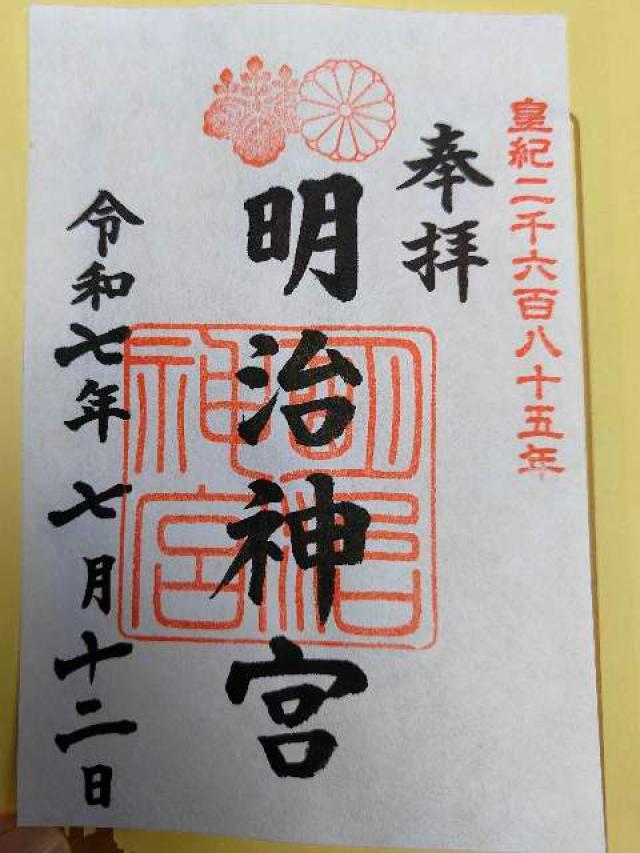 皇紀二千六百八十五年
奉拝
明治神宮
明治神宮
令和七年七月十二日